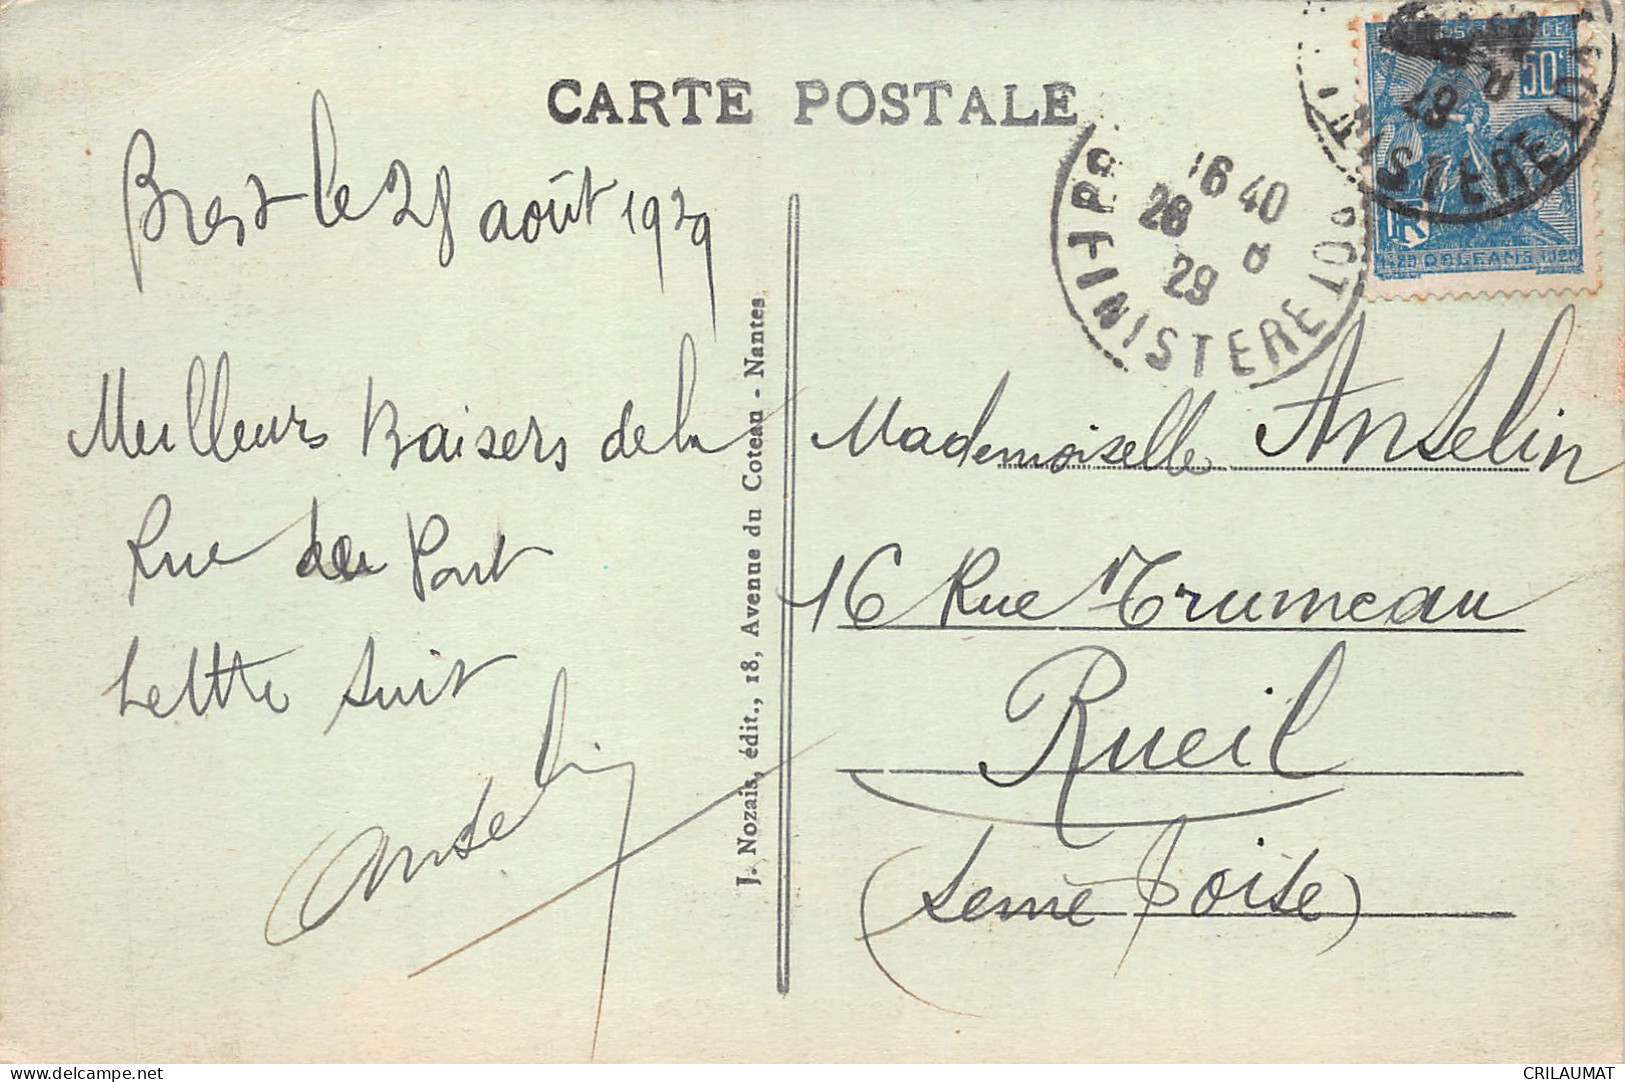 CARTE POSTALE
Brest le 28 août 1929
Meilleurs Baisers de la
Rue du Pont
Lettre suit
Anselin
J. Nozais, édit., 18, Avenue du Coteau - Nantes
16 40
28 8
29
FINISTERE
50c
FINISTERE
29
1429 ORLEANS 1929
Mademoiselle Anselin
16 Rue Trumeau
Rueil
(Seine & Oise)
CRILAUMAT